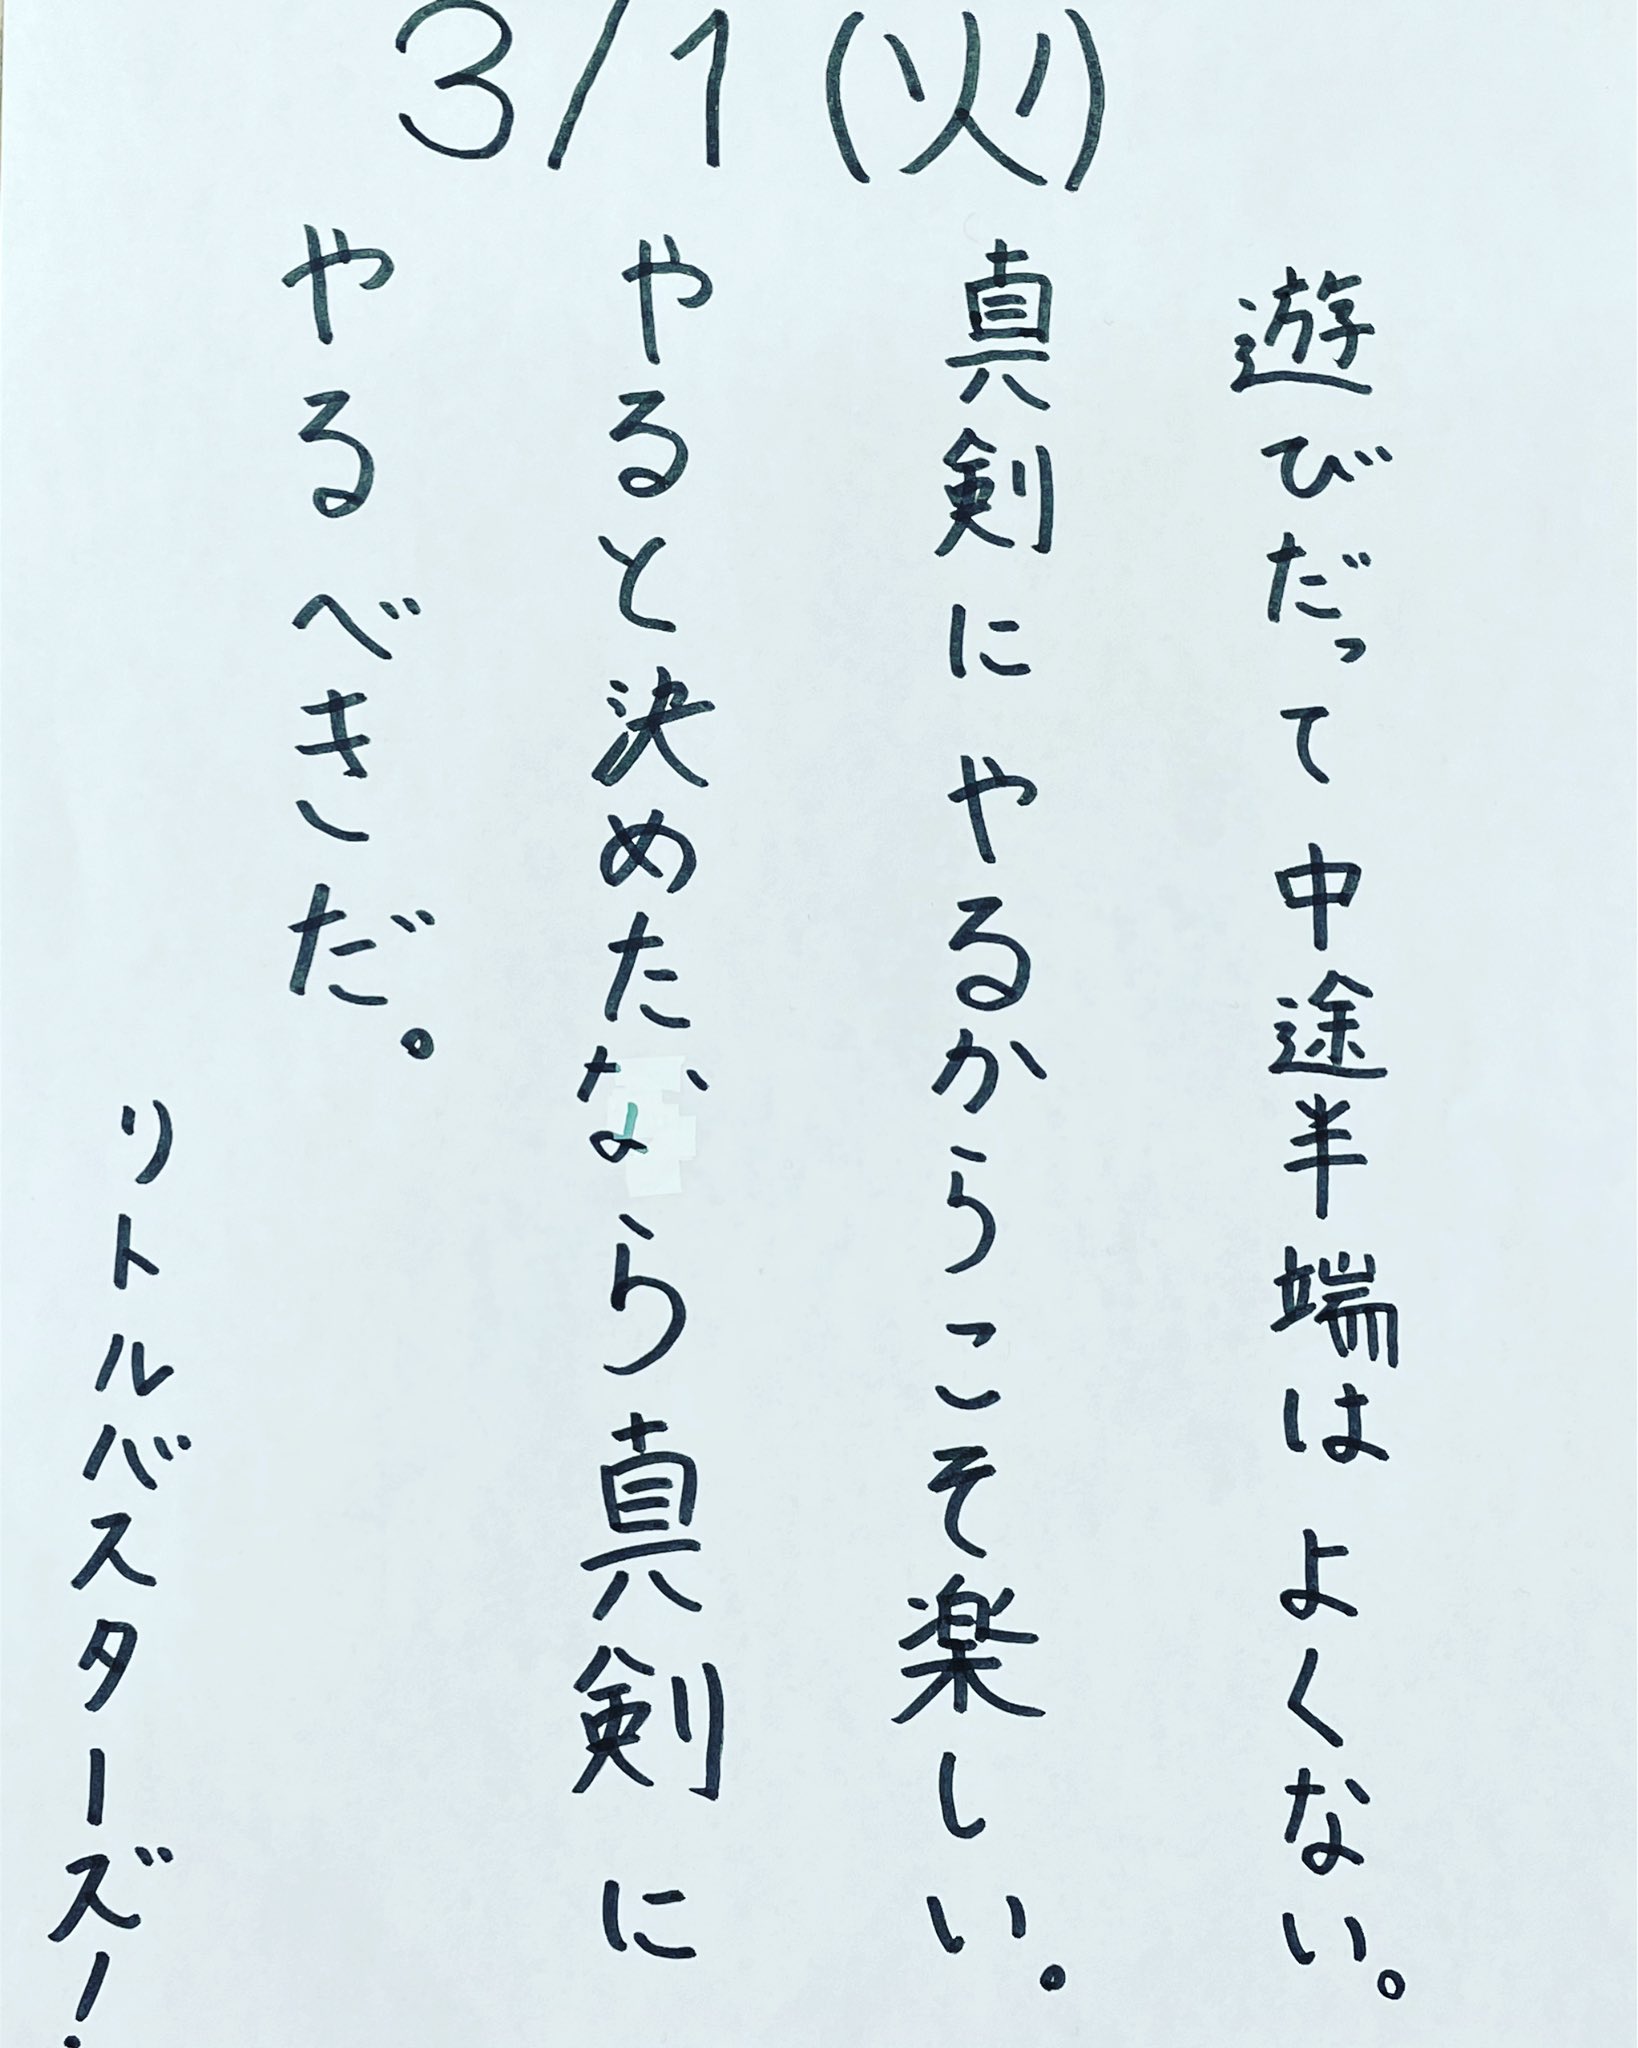 3/1(火)
遊びだって中途半端はよくない。
真剣にやるからこそ楽しい。
やると決めたなら真剣に
やるべきだ。
リトルバスターズ!